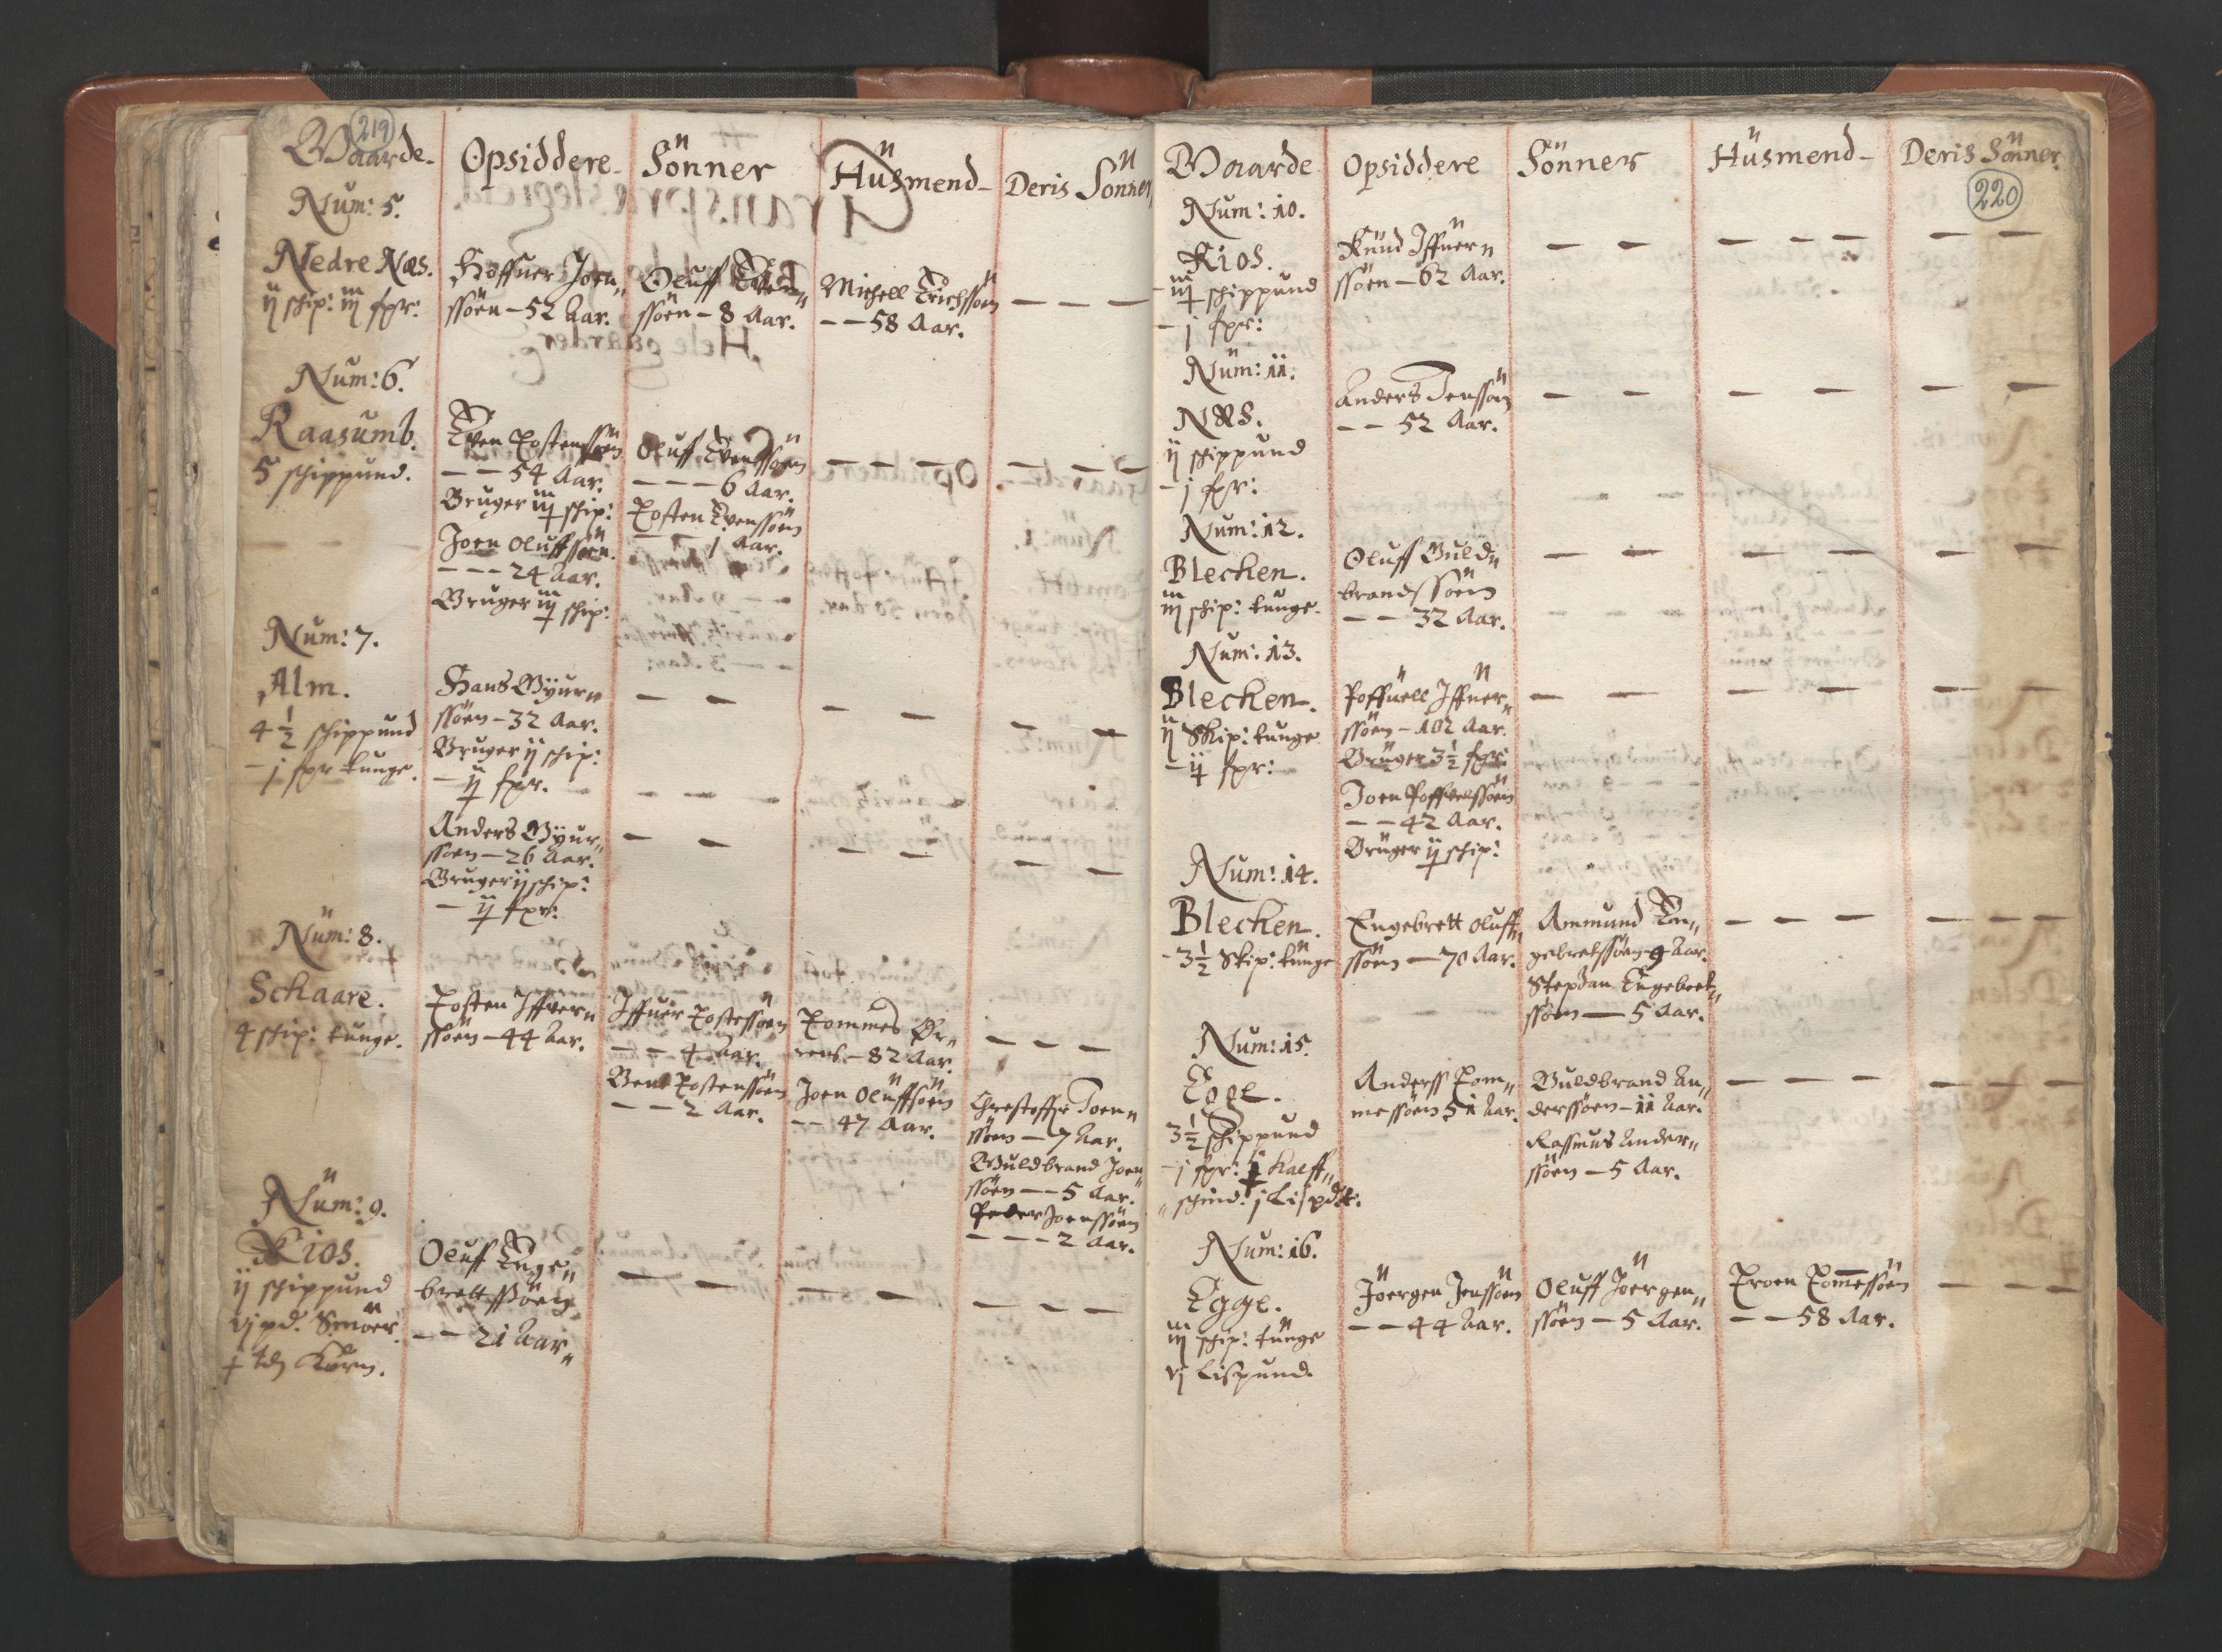 219
Gaarde.
Opsiddere.
Sönner
Hüsmend
Deris Sönner
Num: 5.
Nedre Næs.
ij schip: iij fpr:
Höffuer Joen„
ssöen – 52 Aar.
Oluff
ssöen – 8 Aar.
Michell Erichssöen
– – 58 Aar.
Num: 6.
Raasumb.
5 schippund.
Even Tostenssöen
– – 54 Aar.
Bruger iij schip:
Joen Oluffssöen.
– – – 24 Aar.
Bruger iij schip:
Oluff Evenssöen
– – – 6 Aar.
Tosten Evenssöen
– – j Aar.
Num: 7.
Alm.
4 1/2 schippund
– j fpr tunge.
Hans Gÿur„
ssöen – 32 Aar.
Bruger ij schip:
– ij fpr.
Anders Gÿur„
ssöen – 26 Aar.
Bruger ij schip:
– ij fpr:
Num: 8.
Schaare.
4 schip: tunge.
Tosten Iffver„
ssöen – 44 Aar.
Iffuer Tostessöen
– – 4 Aar.
Bent Tostenssöen
– – 2 Aar.
Tommes
– 82 Aar.
Joen Oluffsöen
– – 47 Aar.
Chrestoffer Joen„
ssöen – 7 Aar.
Guldbrand Joen„
ssöen – – 5 Aar.
Peder Joenssöen
– – – 2 Aar.
Num: 9.
Kios.
ij schippund
pd. Smöer
Korn.
Oluff Enge„
brettssöen
– – 21 Aar„
Gaarde
Opsiddere
Sönner
Hüsmend
Deris Sönner.
220
Num: 10.
Kios.
iij schippund
– j fpr:
Knud Iffuer„
ssöen – 62 Aar.
Num: 11.
Næs.
ij schippund
– j fpr:
Anders Jenssöen
– – 52 Aar.
Num: 12.
Blecken.
iij schip: tunge.
Oluff Guld„
brandssöen
– – 32 Aar.
Num: 13.
Blecken.
ij Skip: tunge
– ij fpr:
Poffuell Iffuer„
ssöen – 102 Aar.
Brüger 3 1/2 fpr:
Joen Poffvelssöen
– – 42 Aar.
Brüger ij schip:
Num: 14.
Blecken.
– 3 1/2 Skip: tunge
Engebrett Oluff„
ssöen – 70 Aar.
Ammund En„
gebretssöen 9 Aar.
Stephan Engebret„
ssöen – 5 Aar.
Num: 15.
Egge.
3 1/2 schippund
– j fpr: j Kalff„
„schind: j Lispdt:
Anderss Tom„
messöen 51 Aar.
Guldbrand An„
derssöen – 11 Aar.
Rasmus Ander„
ssöen – 5 Aar.
Num: 16.
Egge.
iij schip: tunge
vj Lispund.
Jöergen Jenssöen
– – 44 Aar.
Oluff Jöergen„
ssöen – 5 Aar.
Troen Tommessöen
– – 58 Aar.